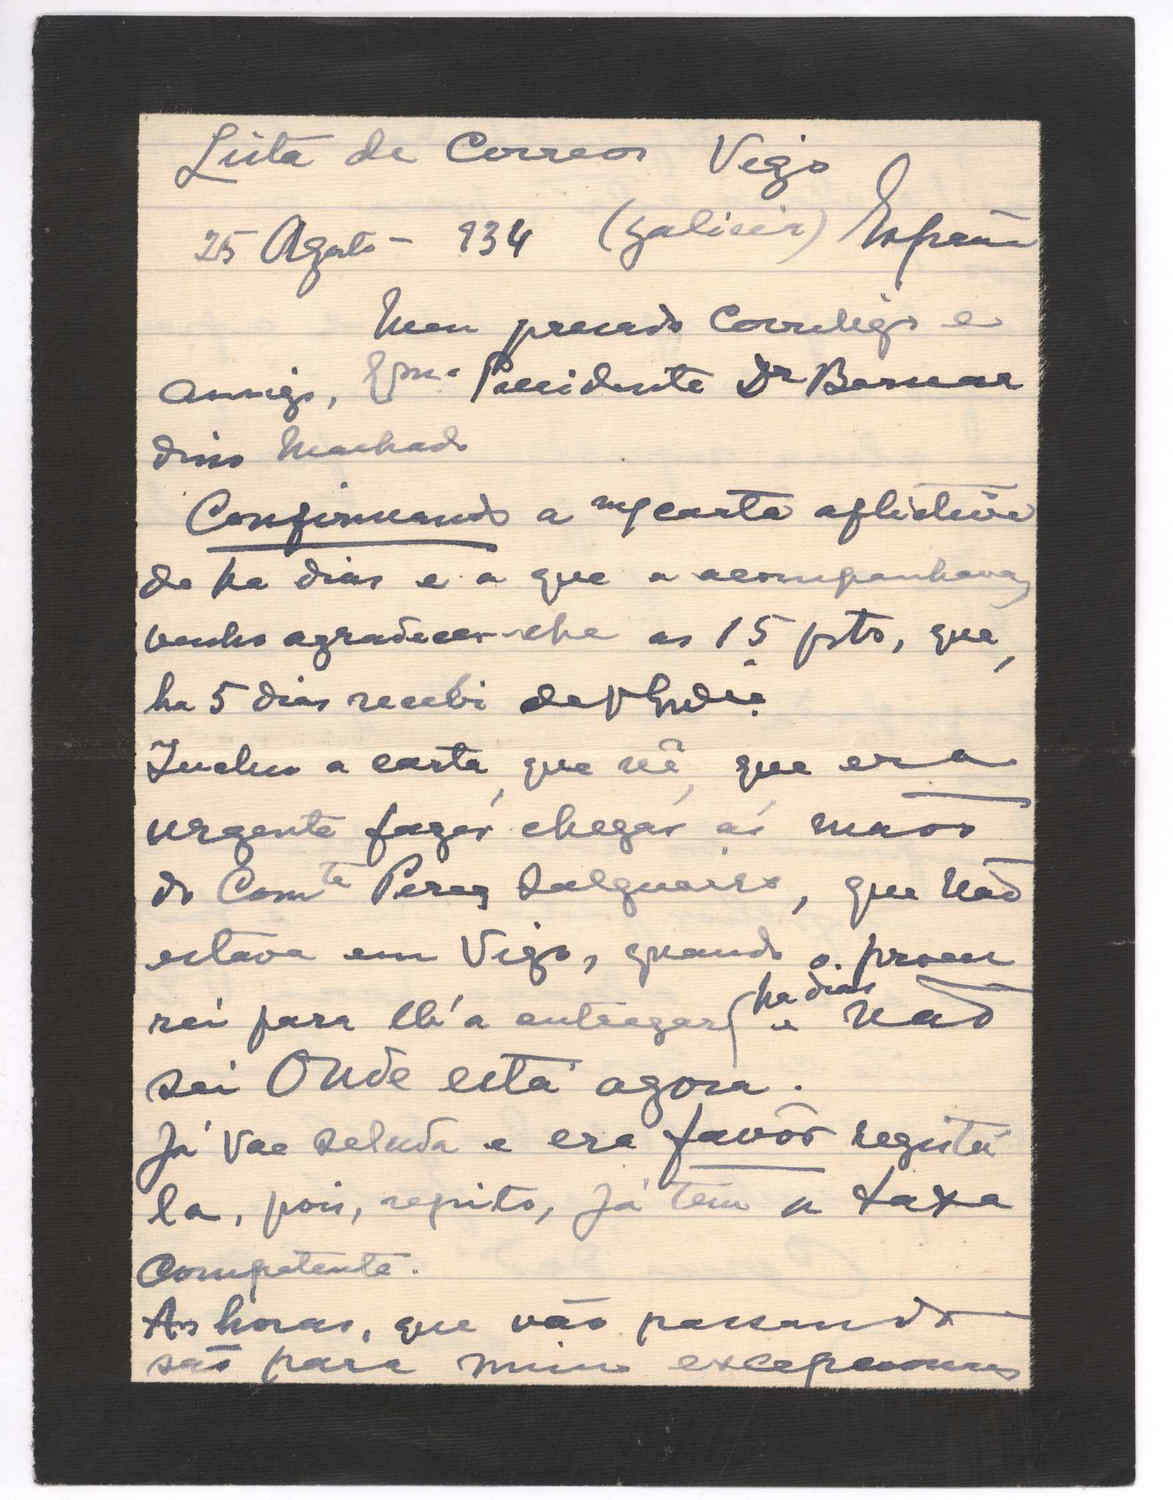 Lista de Correos Vigo
25 Agosto - 934 (Galicia) España
Meu presado Correligº e
amigo, Exmº Presidente Dr Bernar
dino Machado
Confirmando a mª carta aflictiva
de ha dias e a que a acompanhava,
venho agradecer-lhe as 15 pts, que,
ha 5 dias recebi de V Exciª
Incluo a carta, que vê, que era
urgente fazer chegar ás mãos
do Comte Perez Salgueiro, que não
estava em Vigo, quando o procu
rei para lh'a entregar, ha dias e não
sei Onde está agora.
Já vae selada e era favôr registá
la, pois, repito, já tem a taxa
competente.
As horas, que vão passando
são para mim